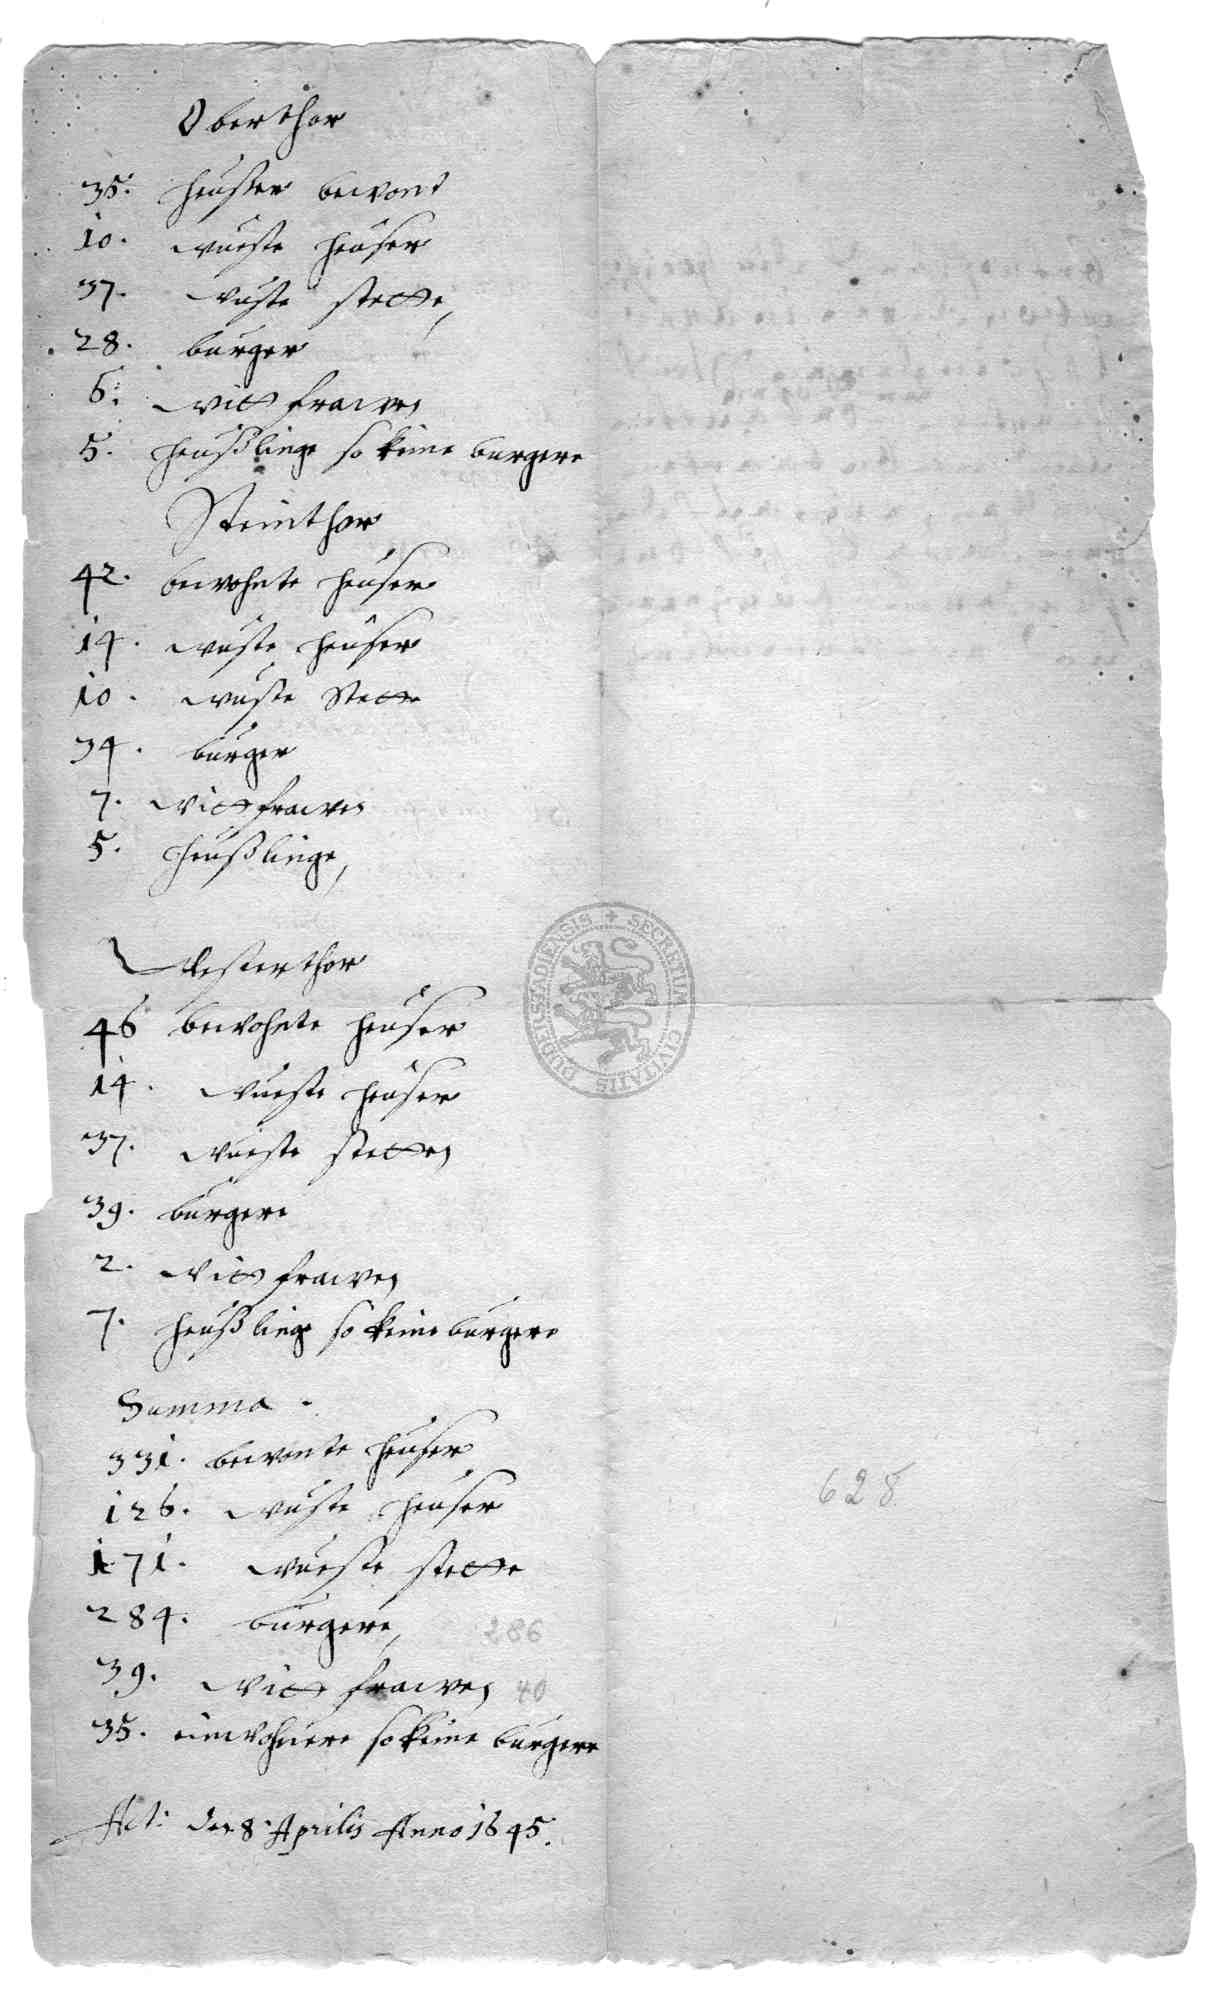 Oberthor
35. heuser bewont
10. wueste heuser
37. wuste stette,
28. burger
6. witfrawen
5. heußlinge so keine burgere
Steinthor
42. bewohnte heuser
14. wuste heuser
10. wuste Stette
34. burger
7. witfrawen
5. heußlinge,
Westerthor
46 bewohnte heuser
14. wueste heuser
37. wueste stetten
39. burgere
2. witfrawen
7. heußlinge so keine burgere
Summa.
331. bewonte heuser
126. wuste heuser
628
171. wueste stette
284. burgere, 286
39. wit frawen 40
35. einwohnere so keine burgere
Act: den 8. Aprilis Anno 1645.
SECRETUM CIVITATIS DUDERSTADIENSIS